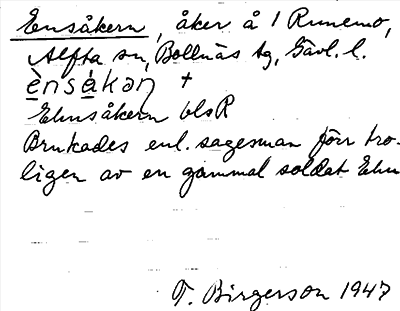 Ensåkern, åker å 1 Runemo,
Alfta sn, Bollnäs tg, Gävl. l.
ènsákan +
Ehnsåkern blsR
Brukades enl. sagesman förr tro-
ligen av en gammal soldat Ehn
T. Birgerson 1947